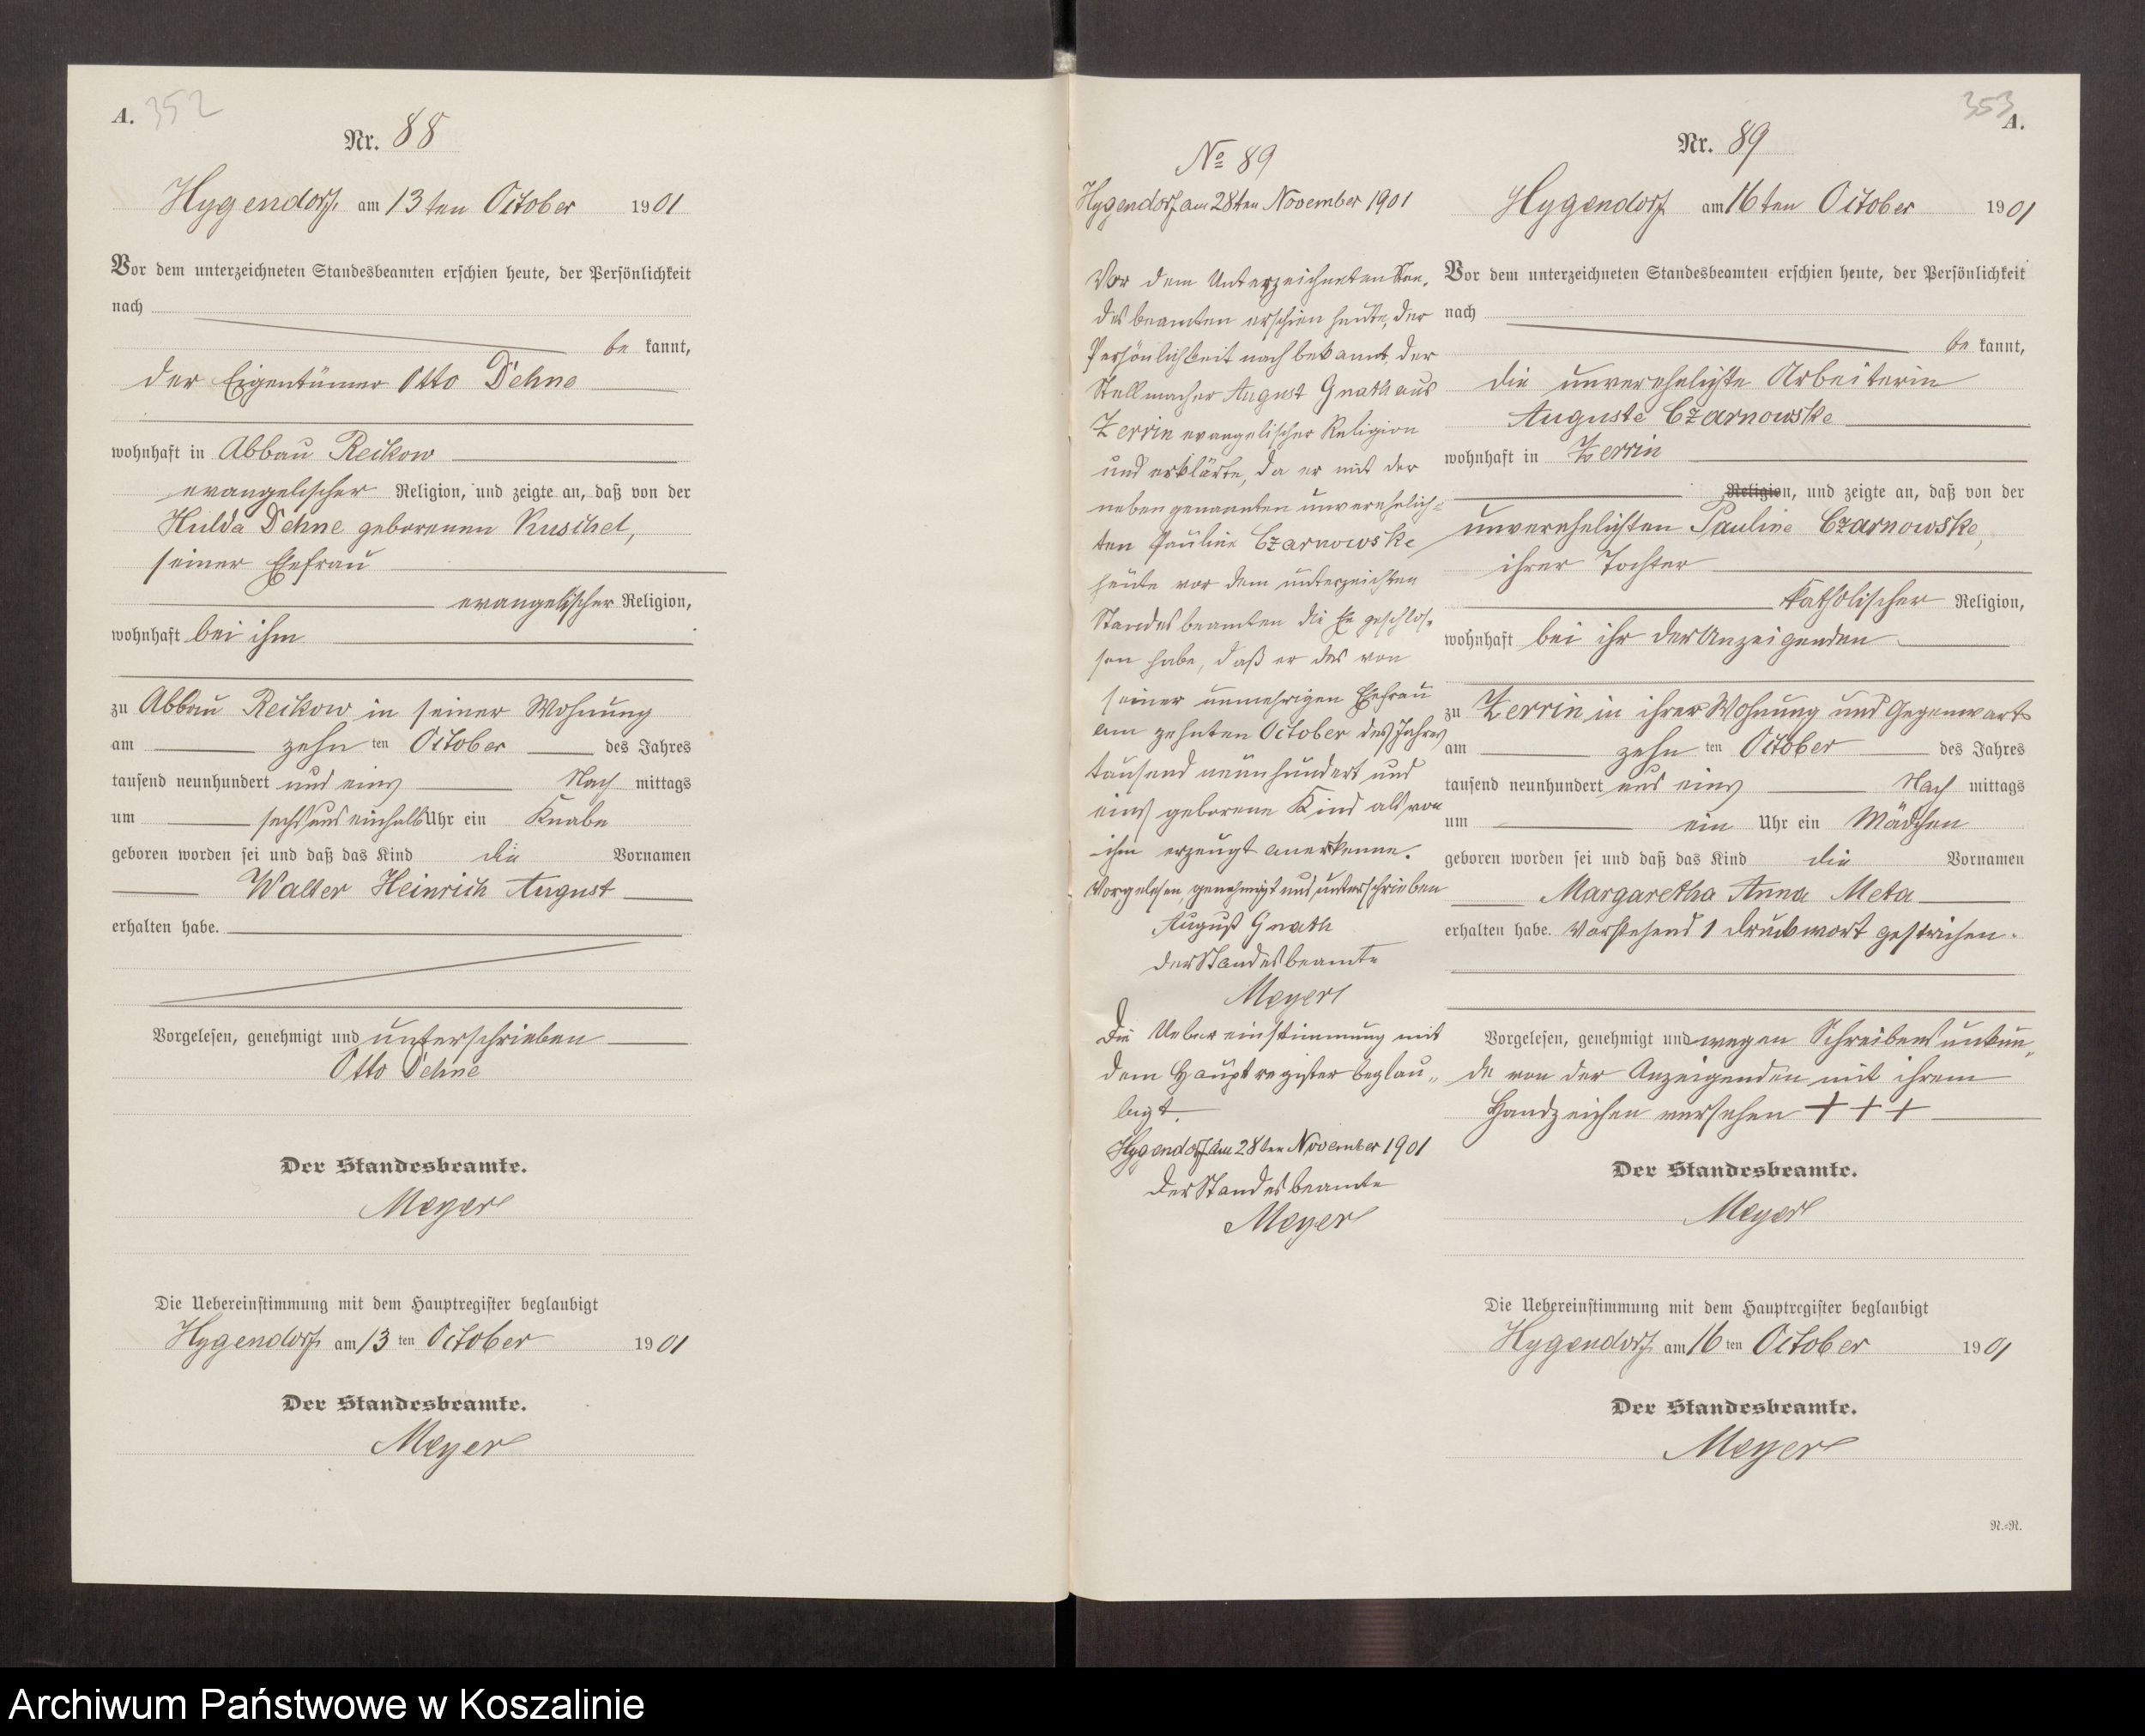 A. 352
Nr. 88
Hygendorf, am 13ten October 1901
Vor dem unterzeichneten Standesbeamten erschien heute, der Persönlichkeit
nach
be kannt,
der Eigentümer Otto Dehne
wohnhaft in Abbau Reckow
evangelischer Religion, und zeigte an, daß von der
Hulda Dehne geborenen Kuschel,
seiner Ehefrau
evangelischer Religion,
wohnhaft bei ihm
zu Abbau Reckow in seiner Wohnung
am zehn ten October des Jahres
tausend neunhundert und eins Nach mittags
um sechs und einhalb Uhr ein Knabe
geboren worden sei und daß das Kind die Vornamen
Walter Heinrich August
erhalten habe.
Vorgelesen, genehmigt und unterschrieben
Otto Dehne
Der Standesbeamte.
Meyer
Die Uebereinstimmung mit dem Hauptregister beglaubigt
Hygendorf am 13 ten October 1901
Der Standesbeamte.
Meyer
No 89
Hygendorf am 28ten November 1901
Vor dem Unterzeichneten Stan-
desbeamten erschien heute, der
Persönlichkeit nach bekannt, der
Stellmacher August Gnath aus
Zerrin evangelischer Religion
und erklärte, da er mit der
nebengenannten unverehelich=
ten Pauline Czarnowske
heute vor dem unterzeichten
Standesbeamten die Ehe geschlos-
sen habe, daß er das von
seiner nunmehrigen Ehefrau
am zehnten October des Jahres
tausend neunhundert und
eins geborene Kind als von
ihm erzeugt anerkenne.
Vorgelesen, genehmigt und unterschrieben
August Gnath
Der Standesbeamte
Meyer
Die Uebereinstimmung mit
dem Hauptregister beglau„
bigt.
Hygendorf am 28ten November 1901
Der Standesbeamte
Meyer
353
A.
Nr. 89
Hygendorf am 16ten October 1901
Vor dem unterzeichneten Standesbeamten erschien heute, der Persönlichkeit
nach
be kannt,
die unverehelichte Arbeiterin
Auguste Czarnowske
wohnhaft in Zerrin
Religion, und zeigte an, daß von der
unverehelichten Pauline Czarnowske,
ihrer Tochter
katholischer Religion,
wohnhaft bei ihr der Anzeigenden
zu Zerrin in ihrer Wohnung und Gegenwart
am zehn ten October des Jahres
tausend neunhundert und eins Nach mittags
um ein Uhr ein Mädchen
geboren worden sei und daß das Kind die Vornamen
Margaretha Anna Meta
erhalten habe. Vorstehend 1 Druckwort gestrichen.
Vorgelesen, genehmigt und wegen Schreibensunkun„
de von der Anzeigenden mit ihrem
Handzeichen versehen + + +
Der Standesbeamte.
Meyer
Die Uebereinstimmung mit dem Hauptregister beglaubigt
Hygendorf am 16 ten October 1901
Der Standesbeamte.
Meyer
N.=N.
Archiwum Państwowe w Koszalinie